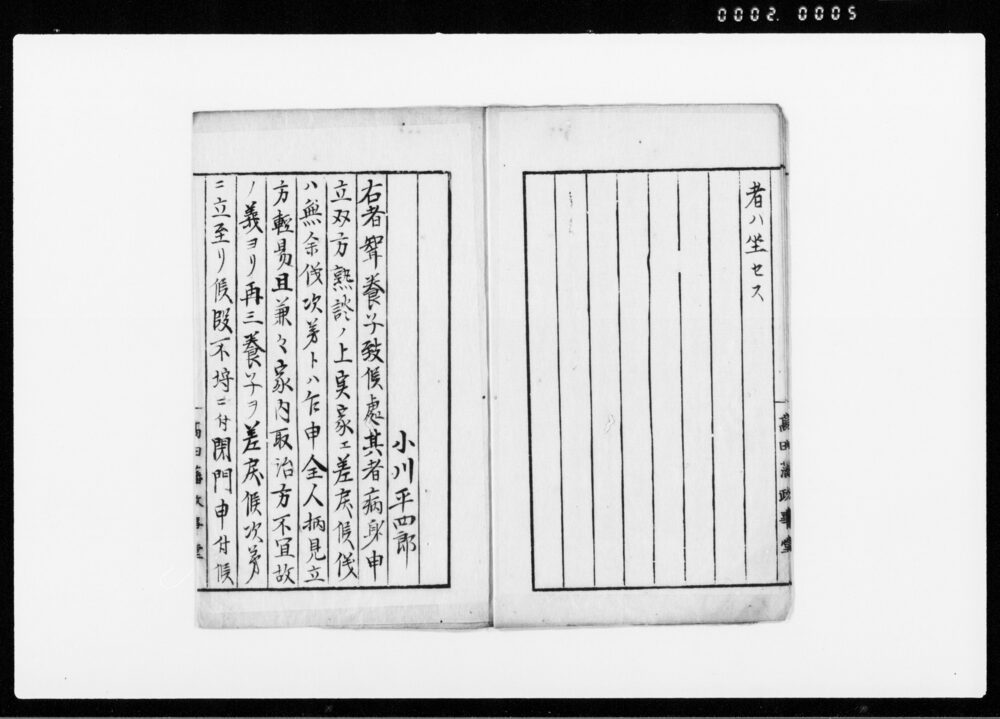 0002. 0005
者ハ坐セス
高田藩政事堂
小川平四郎
右者聟養子致候處其者病身申
立双方熟談ノ上実家エ差戻候儀
ハ無余儀次第トハ乍申全人柄見立
方軽易且兼々家内取治方不宜故
ノ義ヨリ再三養子ヲ差戻候次第
ニ立至リ候段不埒ニ付閉門申付候
高田藩政事堂